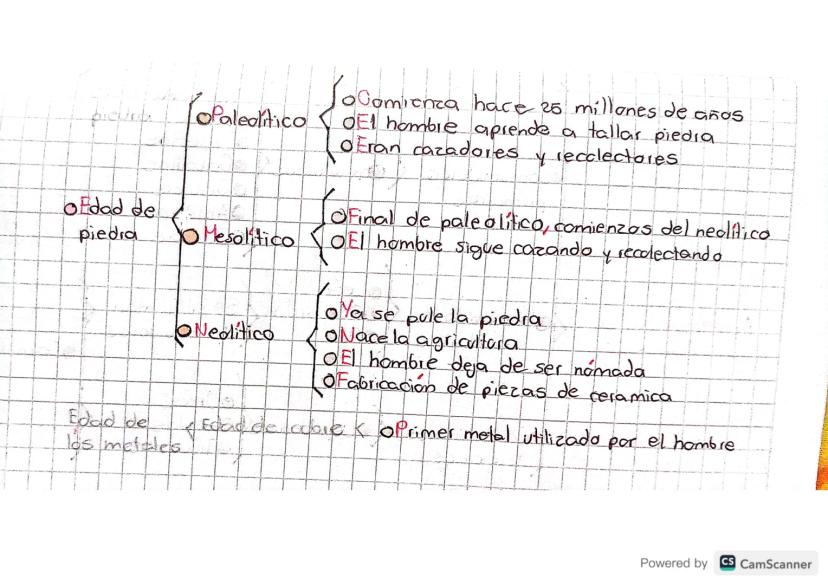 Paleolítico
Comienza hace 25 millones de años
El hombre aprende a tallar piedra
Eran cazadores y recolectores
Edad de
piedra
Mesolítico
Final de paleolítico, comienzos del neolítico
El hombre sigue cazando y recolectando
Neolítico
Ya se pule la piedra
Nace la agricultura
El hombre deja de ser nómada
Fabricación de piezas de ceramica
Edad de
los metales
Edad de cobre
Primer metal utilizado por el hombre
Powered by CS CamScanner